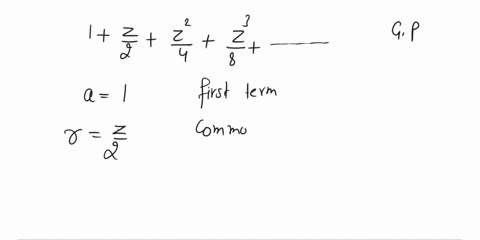 1 + z/2 + z²/4 + z³/8 + ——— G.P
a = 1 first term
r = z/2 Commo